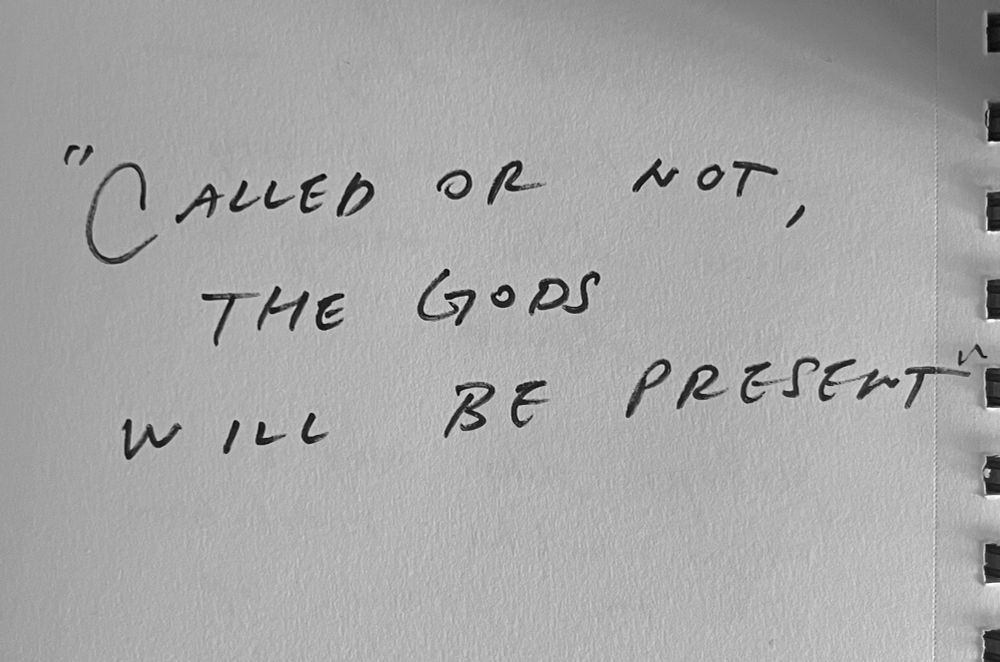 "CALLED OR NOT,
THE GODS
WILL BE PRESENT"